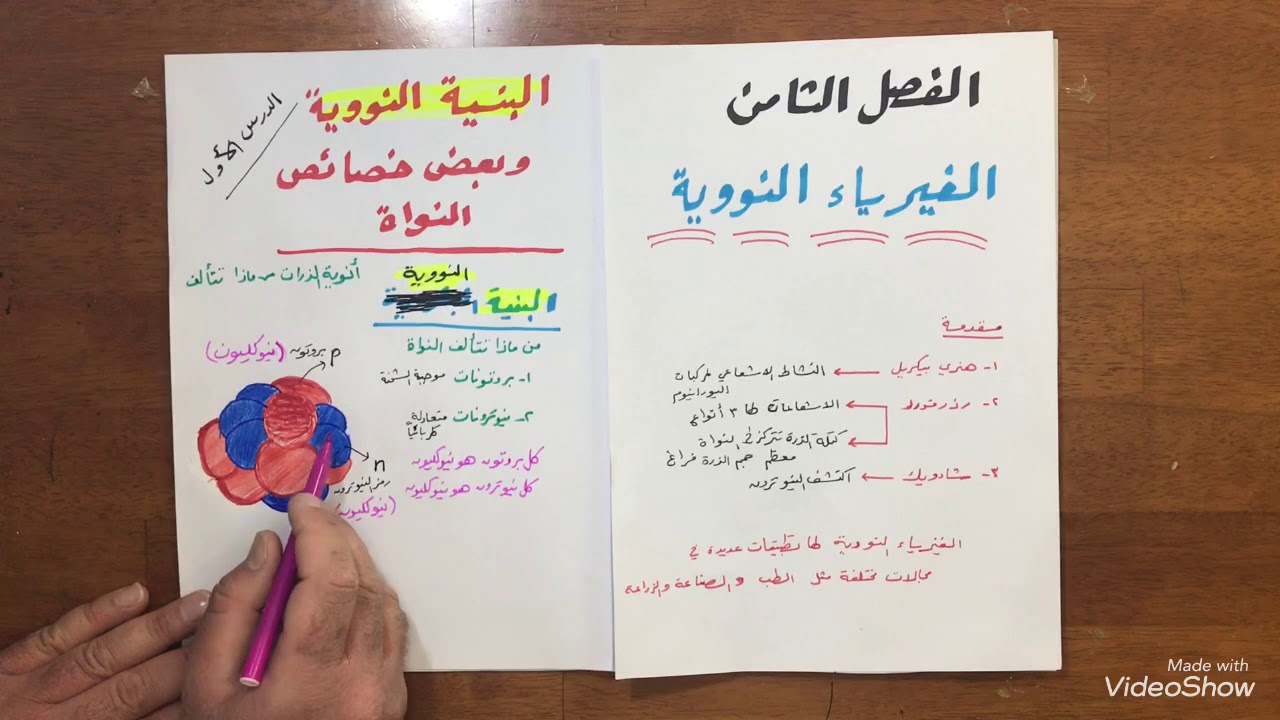 الفصل الثامن
الفيزياء النووية
مقدمة
١- هنري بيكريل ← النشاط الاشعاعي لمركبات
اليورانيوم
٢- رذرفورد ← الاشعاعات لها ٣ أنواع
كتلة الذرة تتركز في النواة
معظم حجم الذرة فراغ
٣- شادويك ← اكتشف النيوترون
الفيزياء النووية لها تطبيقات عديدة في
مجالات مختلفة مثل الطب والصناعة والزراعة
الدرس الأول
البنية النووية
وبعض خصائص
النواة
النووية
البنية
أنوية الذرات من ماذا تتألف
من ماذا تتألف النواة
١- بروتونات موجبة الشحنة
٢- نيوترونات متعادلة
كهربائياً
كل بروتون هو نيوكليون
كل نيوترون هو نيوكليون
p بروتون (نيوكليون)
n
رمز النيوترون
(نيوكليون)
Made with
VideoShow